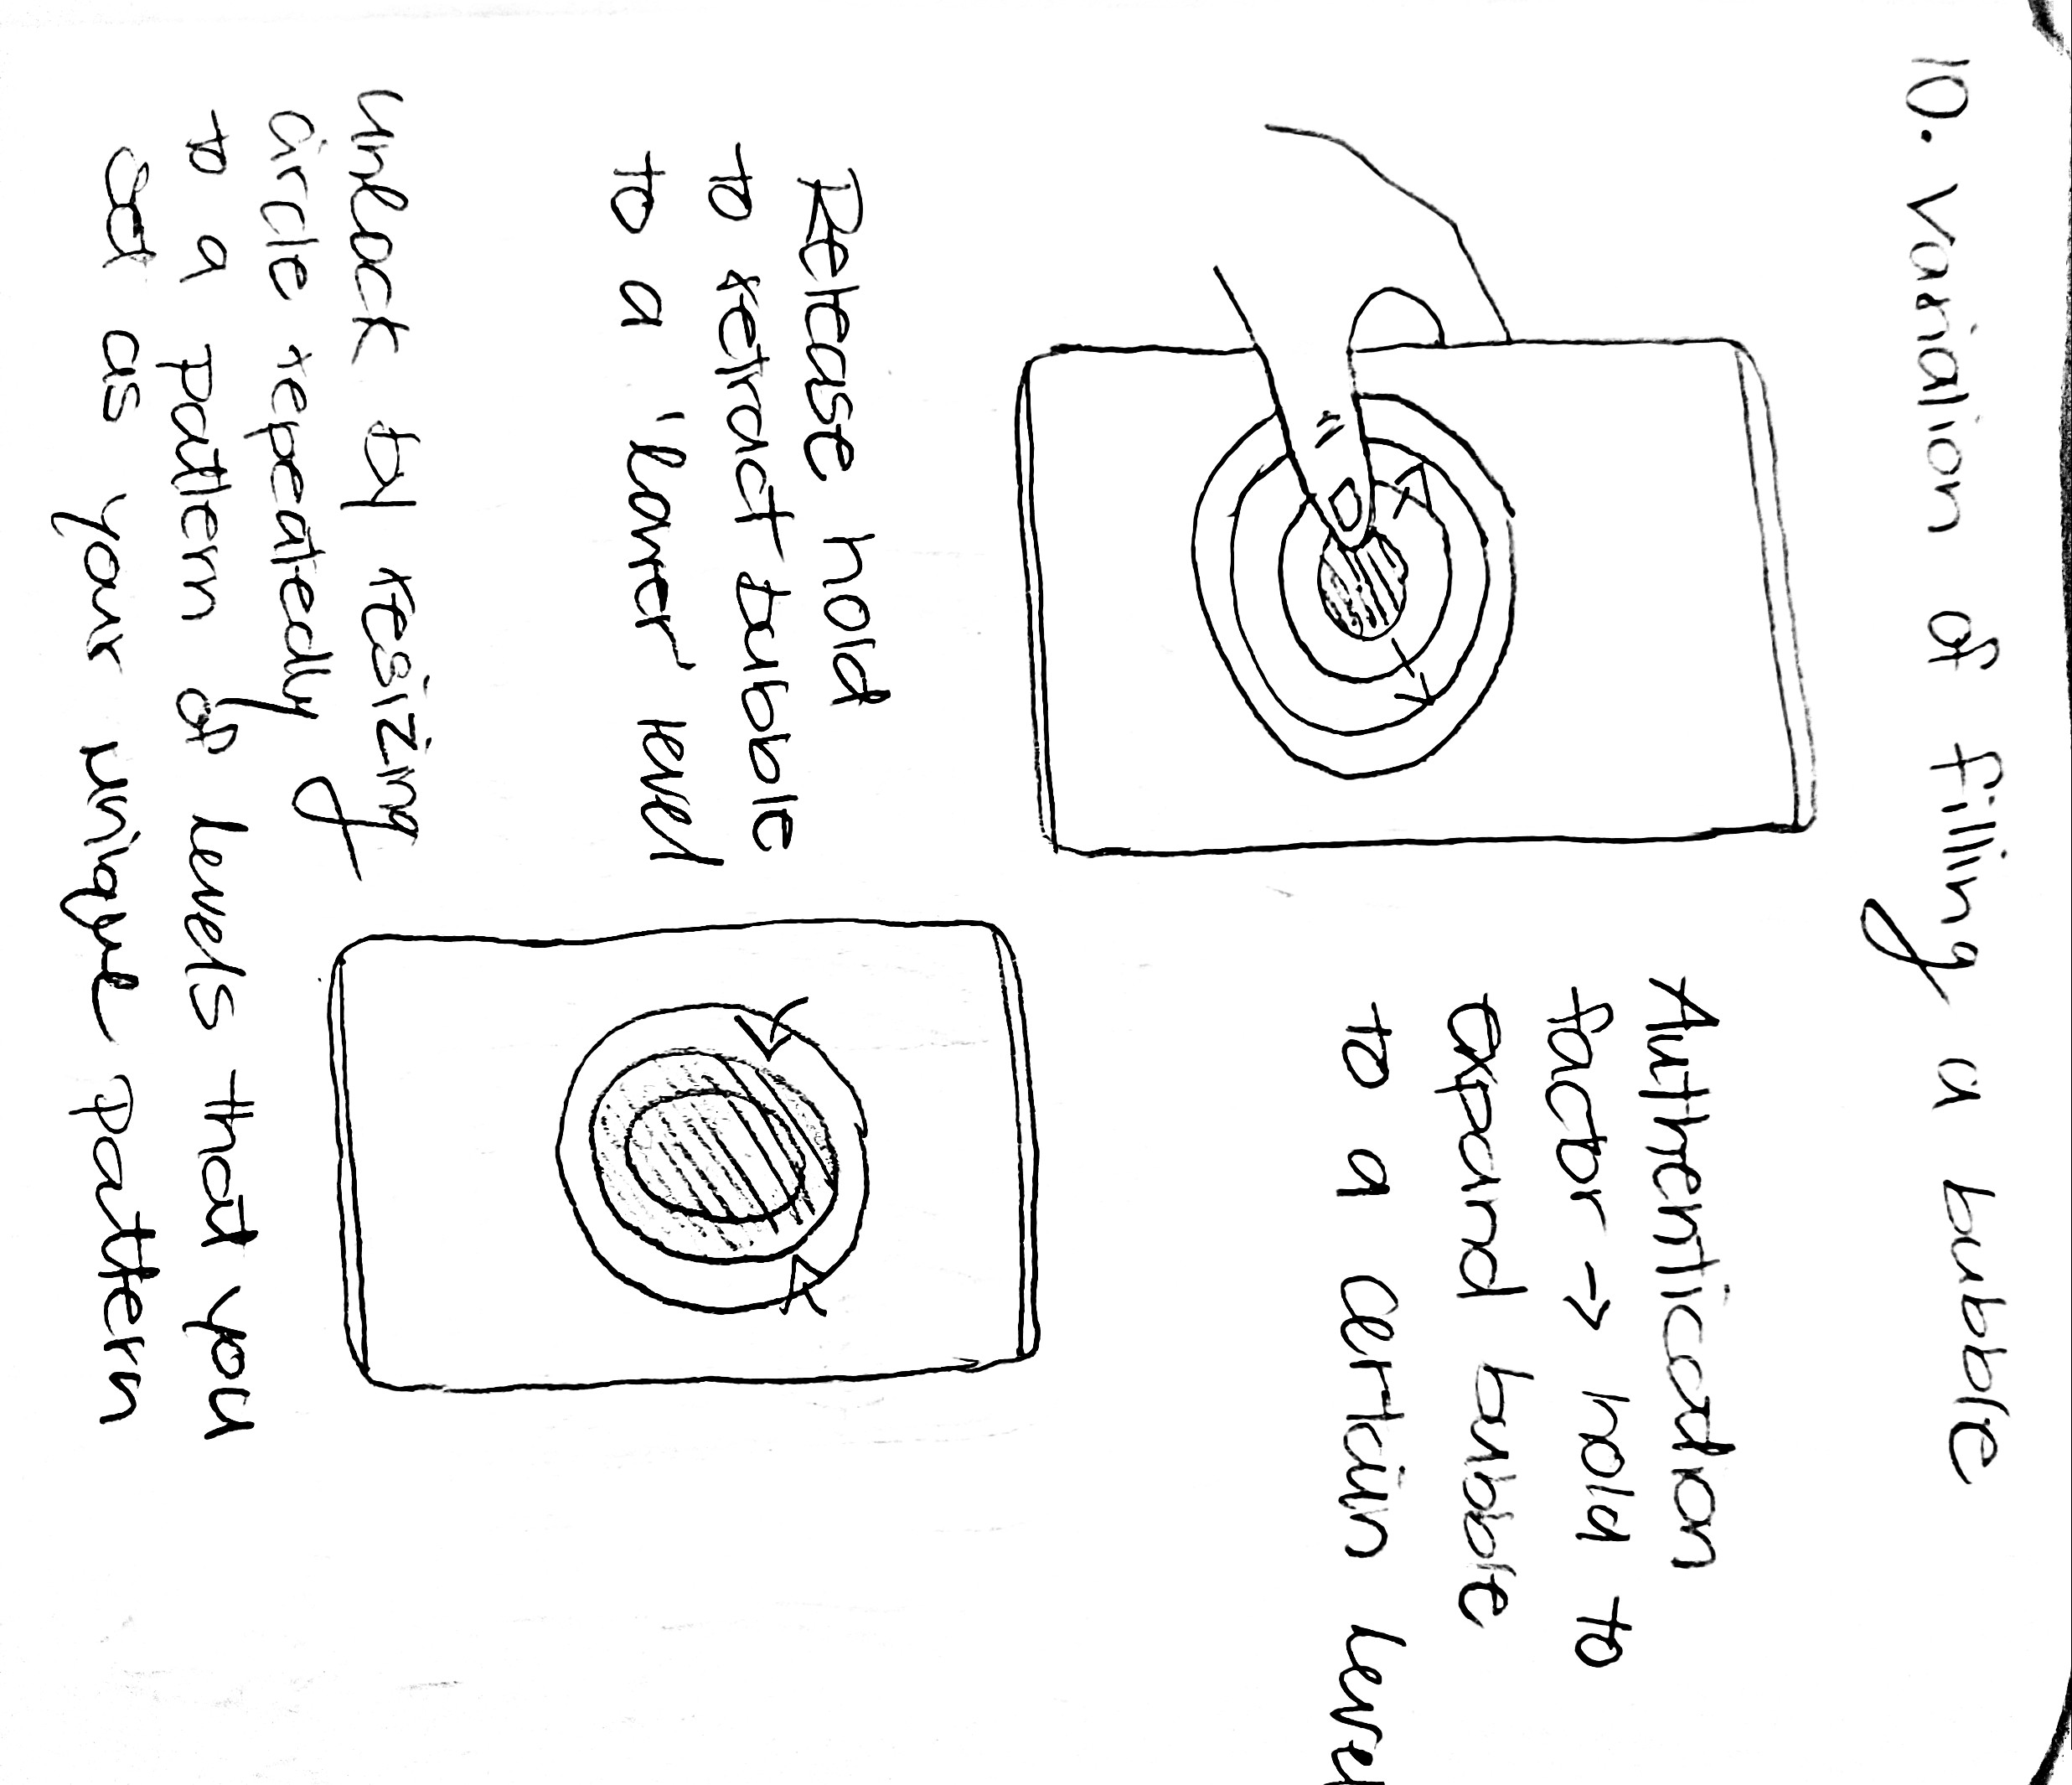 10. Variation of filling a bubble
Authentication
factor -> hold to
expand bubble
to a certain level
Release hold
to retract bubble
to a 'lower' level
unlock by resizing
circle repeatedly
to a pattern of levels that you
set as your unique pattern